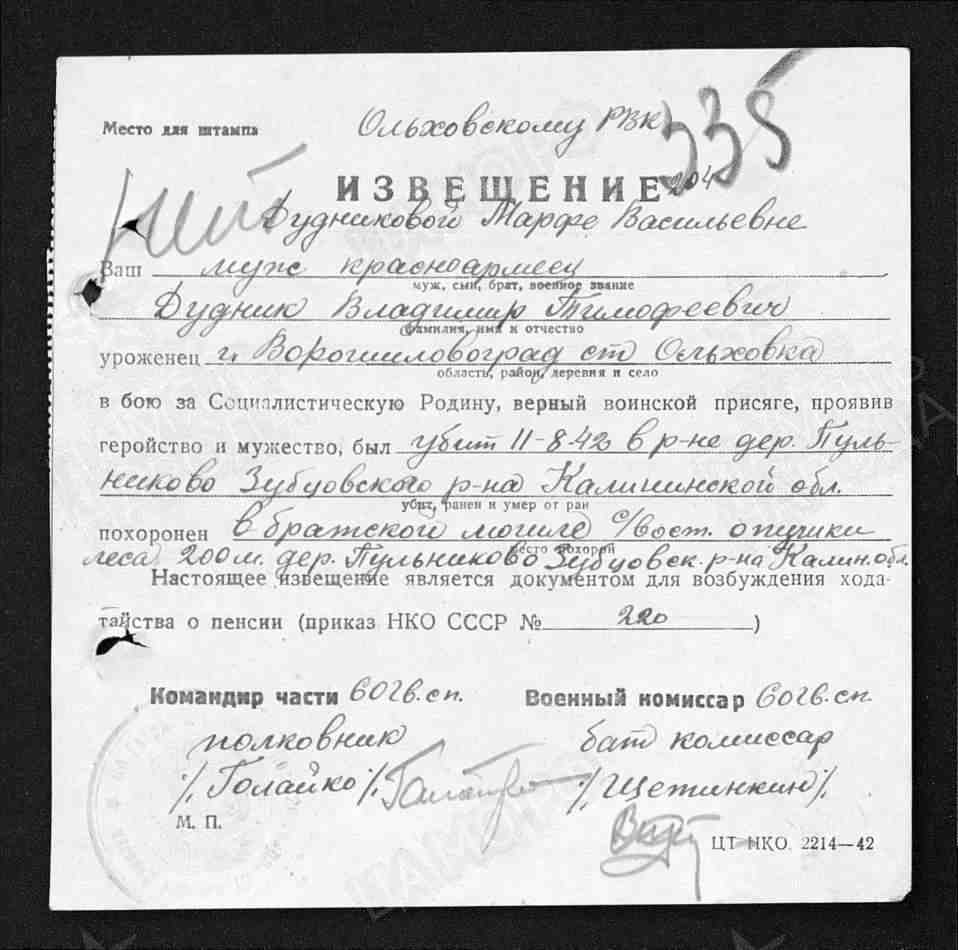 Место для штампа
Ольховскому РВК
335
ИЗВЕЩЕНИЕ
204
Дудниковой Марфе Васильевне
Ваш муж красноармеец
муж, сын, брат, военное звание
Дудник Владимир Тимофеевич
фамилия, имя и отчество
уроженец г. Ворошиловоград ст Ольховка
область, район, деревня и село
в бою за Социалистическую Родину, верный воинской присяге, проявив
геройство и мужество, был убит 11-8-42 в р-не дер. Пуль-
никово Зубцовского р-на Калининской обл.
убит, ранен и умер от ран
похоронен в братской могиле с/вост. опушки
место похорон
леса 200 м. дер. Пульниково Зубцовск. р-на Калин. обл.
Настоящее извещение является документом для возбуждения хода-
тайства о пенсии (приказ НКО СССР № 220 )
Командир части 60 гв. сп. Военный комиссар 60 гв. сп.
полковник бат комиссар
/Голайко/ /Щетинкин/
М. П.
ЦТ НКО. 2214—42